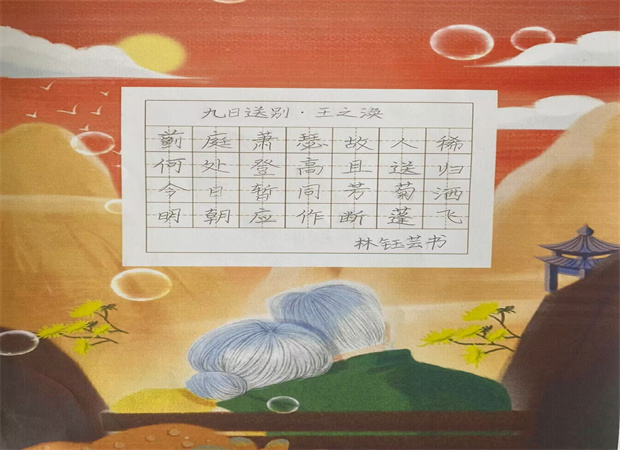 九日送别·王之涣
蓟庭萧瑟故人稀
何处登高且送归
今日暂同芳菊洒
明朝应作断蓬飞
林钰芸书